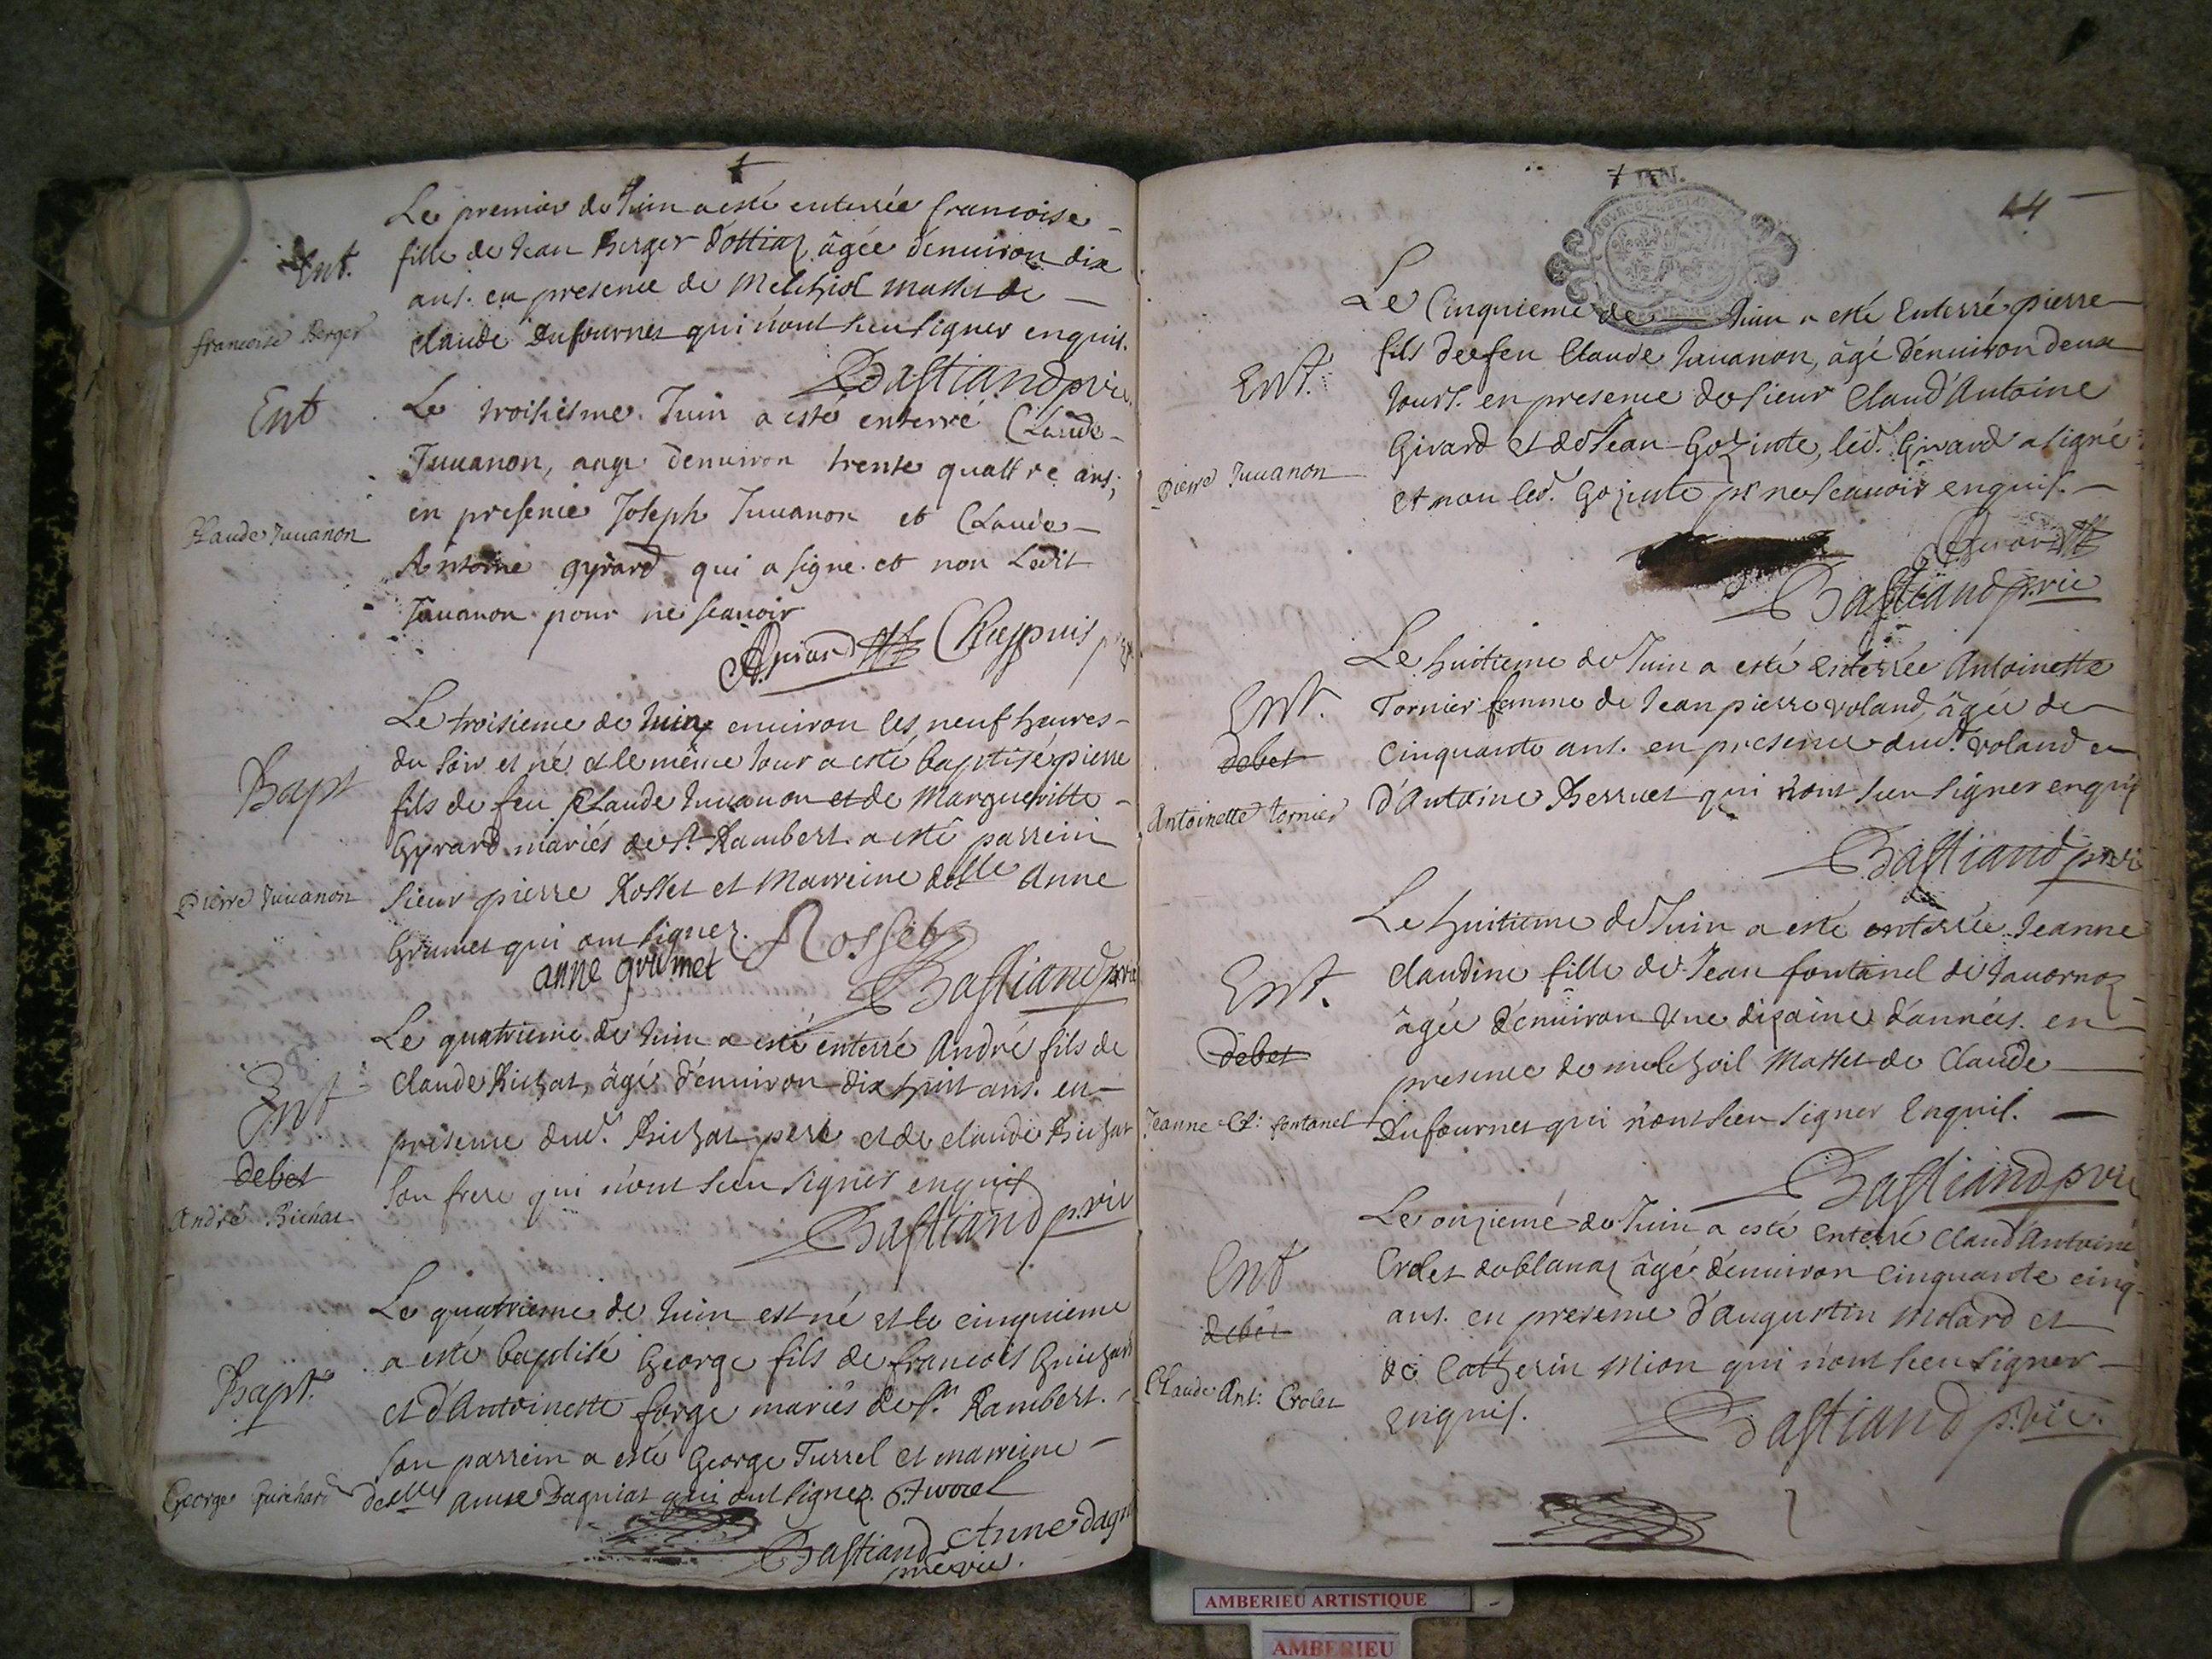 Le premier de Juin a esté enterrée francoise
Ent.
fille de Jean Berger d'ottiaz âgée d'enuiron dix
ans. en presence de Melchiol Masset de
francoise Berger
claude Dufournet qui n'ont sceu signer enquis.
Bastiand p. vic
Ent
Le troisiesme Juin a esté enterré Claude
Juuanon, aage denuiron trente quattre ans,
Claude Juuanon
en presence Joseph Juuanon et Claude
Antoine gyrard qui a signe et non Ledit
Juuanon pour ne scauoir
Girard Chappuis
Le troisieme de Juin enuiron les neuf heures
du soir est né et le même jour a esté baptisé pierre
Bapt
fils de feu Claude Juuanon et de Margueritte
Gyrard mariés de St. Rambert. a esté parrein
Pierre Juuanon
sieur pierre Rosset et Marreine delle Anne
Grumet qui ont signez. Rosset
anne grumet
Bastiand p. vic
Le quatrieme de Juin a esté enterré André fils de
Ent
Claude Richat, âgé d'enuiron dix huit ans. en
presence dud. Richat pere et de claude Richat
debet
son frere qui n'ont sceu signer enquis
André Richat
Bastiand p. vic
Le quatrieme de Juin est né et le cinquieme
Bapt.
a esté baptisé George fils de francois Guichard
et d'Antoinette forge mariés de St. Rambert.
son parrein a esté George Turrel et marreine
George Guichard
delle anne Dagniat qui ont signez.
Bastiand Anne dagn
p. vic.
44
Le Cinquieme de Juin a esté Enterré pierre
Ent.
fils de feu Claude Juuanon, âgé d'enuiron deux
jours. en presence de sieur Claud'Antoine
Pierre Juuanon
Girard et de Jean Gozinte, led. Girard a signé
et non led. Gozinte pr. ne scauoir enquis.
Girard
Bastiand p. vic
Le huitieme de Juin a esté enterrée Antoinette
Ent.
Tornier femme de Jean pierre voland, âgée de
debet
cinquante ans. en presence dud. voland et
Antoinette tornier
d'Antoine Perruet qui n'ont sceu signer enquis
Bastiand p. vic
Le huitieme de Juin a esté enterrée Jeanne
Ent.
claudine fille de Jean fontanel de Jauornoz
âgée d'enuiron une dizaine d'années. en
debet
presence de melchiol Masset de Claude
Jeanne Cl: fontanel
Dufournet qui n'ont sceu signer Enquis.
Bastiand p. vic
Le onzieme de Juin a esté enterré Claud'Antoine
Ent
Crolet de blanaz âgé d'enuiron cinquante cinq
debet
ans. en presence d'Augustin Molard et
de Catherin Mion qui n'ont sceu signer
Claude Ant: Crolet
enquis.
Bastiand p. vic.
AMBERIEU ARTISTIQUE
AMBERIEU